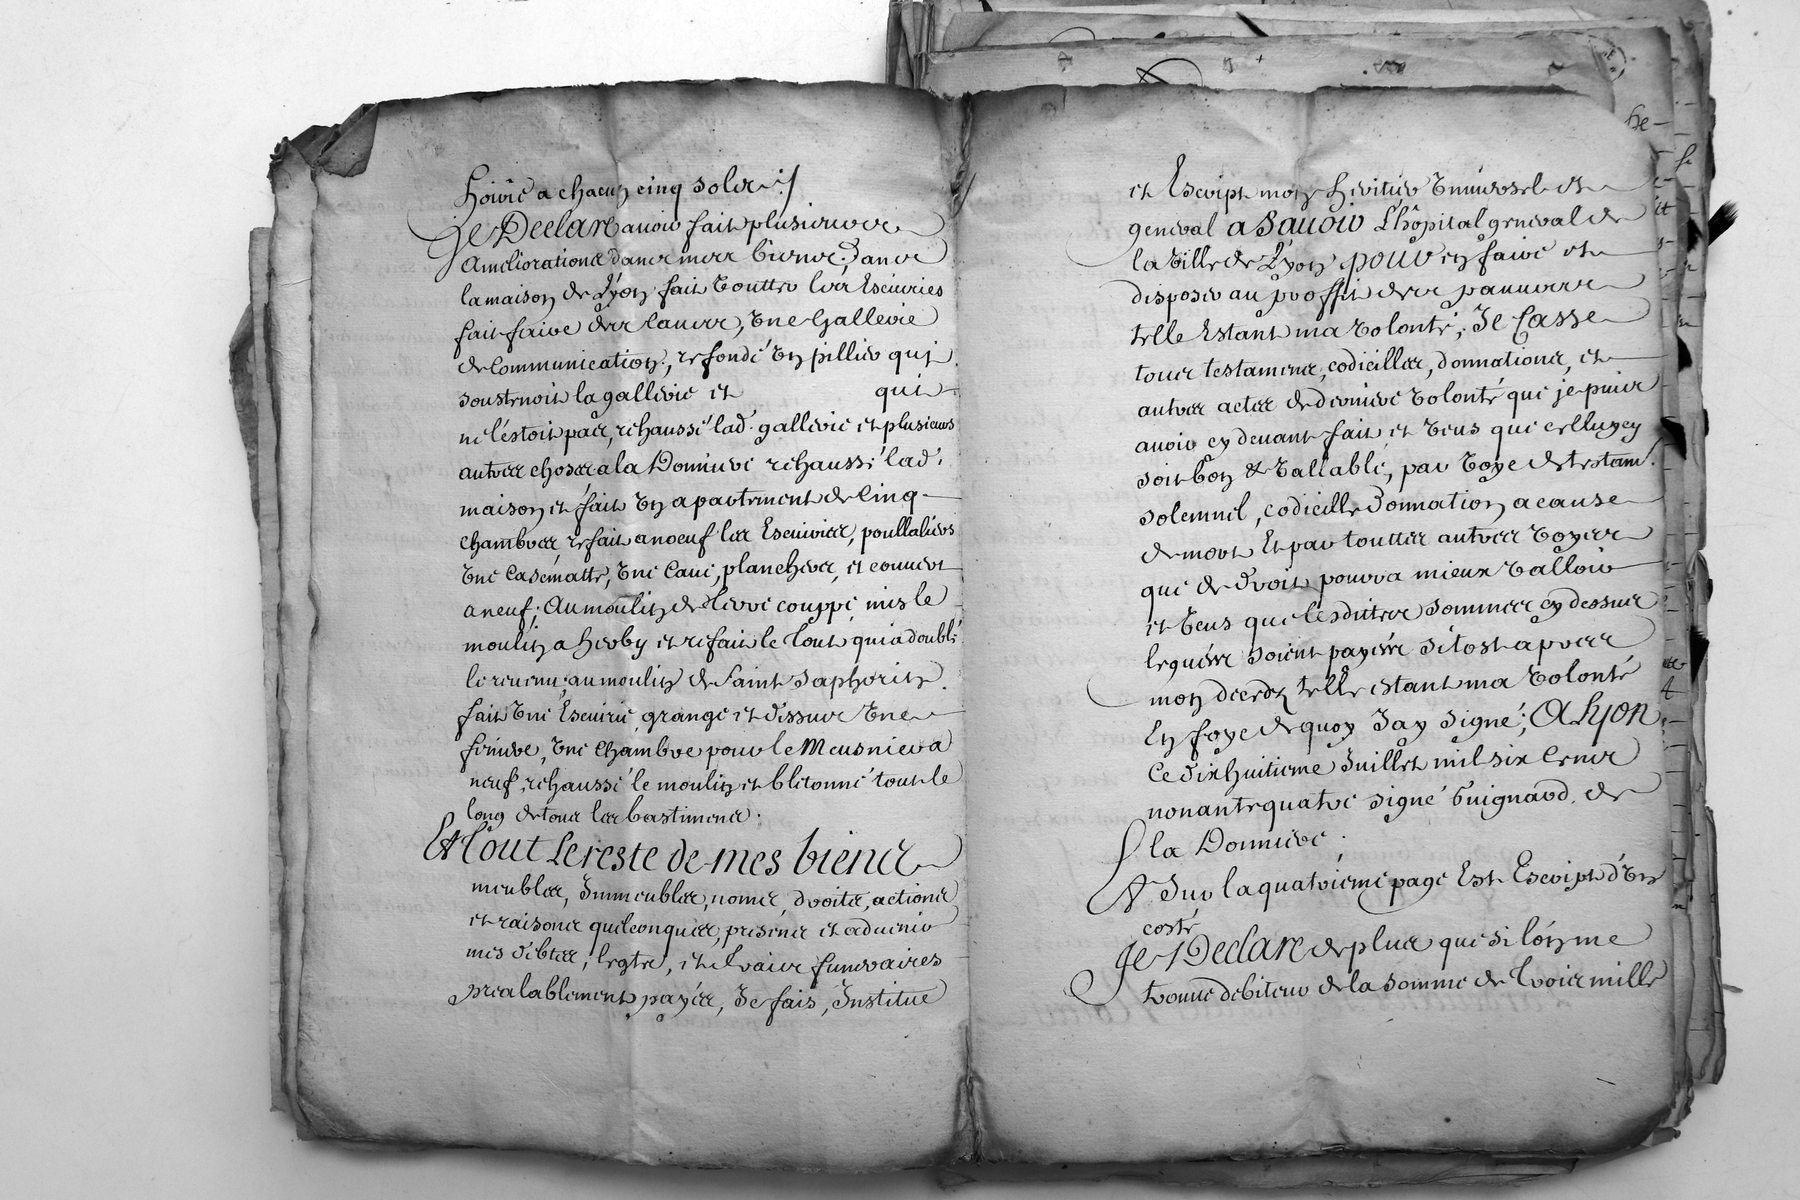 hoirie a chacun cinq solds
Je Declare avoir fait plusieurs
ameliorations dans mes biens; Dans
la maison de Lyon fait voutter les Escuiries
fait faire des caves, Une Gallerie
de Communication, refondé Un pillier qui
soustenoit la gallerie et qui
ne l'estoit pas, rehaussé lad. gallerie et plusieurs
autres choses a la Dorniere rehaussé lad.
maison et fait Un apartement de Cinq
chambres, refait a noeuf les Escuiries, poullaliers
Une Casematte, Une Cave, planchers, et couvert
a neuf; Au moulin de couppé mis le
moulin a herby et refait le Tout qui a doublé
le revenu; au moulin de Saint Saphorin
fait Une Escuirie, grange et Dessus Une
feniere, Une Chambre pour le Meusnier a
neuf, rehaussé le moulin et bletonné tout le
long de tous les bastimens.
Et Tout Le reste de mes biens
meubles, Immeubles, noms, droits, actions
et raisons quelconques, presens et advenir
mes debtes, legts, et fraix funeraires
prealablement payés, Je fais, Institue
et Escript mon heritier Universel et
general a Sauoir L'hopital general de
la Ville de Lyon pour en faire et
disposer au proffit des pauvres
telle Estant ma Volonté; Je Casse
tous testamens, codicilles, donnations, et
autres actes de derniere Volonté que je puis
avoir cy devant fait et Veus que celluy cy
soit bon & Vallable, par Voye de testam.
solemnel, codicille Donnation a cause
de mort Et par touttes autres Voyes
que de Droit pourra mieux Valloir
et Veus que lesdittes sommes cy dessus
leguées soient payées sitost apres
mon deceds telle estant ma Volonté
En foye de quoy Jay signé; A Lyon
Ce Dixhuitieme Juillet mil six Cens
nonante quatre signé Guignard. de
la Dorniere.
Et Sur la quatrieme page Est Escript d'Un
costé
Je Declare de plus que si l'on me
trouve debiteur de la somme de Trois mille